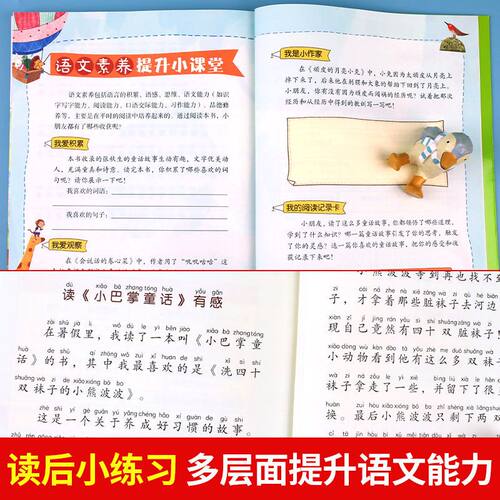 语文素养提升小课堂
语文素养包括语言的积累、语感、思维、语文能力(如识
字写字能力、阅读能力、口语交际能力、习作能力)、品德修
养等,主要是在平时的阅读中培养起来的。通过阅读本书,小
朋友都有了哪些收获呢?
我爱积累
本书收录的张秋生的童话故事生动有趣,文字优美动
人,充满童真和诗意。读完本书,你积累了哪些喜欢的词
句呢?请你展示一下吧!
我喜欢的词语:
我喜欢的句子:
我爱观察
我是小作家
在《顽皮的月亮小兔》中,小兔因为太顽皮从月亮上
摔下来了,后来他在刺猬和大象的帮助下回到了月亮上。
小朋友,你有没有因为顽皮而闯祸的经历呢?试着把那次
经历和从经历中得到的教训写一写吧!
我的阅读记录卡
小朋友,读了这么多童话故事,你都领悟了哪些道理,
学到了什么知识?哪个童话故事引发了你的思考,触动
了你的灵感?选一篇你喜欢的童话故事,把你的感受和收
获记录下来吧!
读《小巴掌童话》有感
在暑假里,我读了一本叫《小巴掌童
话》的书,其中我最喜欢的是《洗四十
双袜子的小熊波波》。
这是一个关于养成好习惯的故事。
小熊波波等到再也找不到
子,才拿着那些脏袜子去河边
现自己竟然有四十双脏袜子!
小动物看到他有这么多双袜子
袜子拿走了一些,并留下了很
换。最后小熊波波只剩下两双
读后小练习 多层面提升语文能力